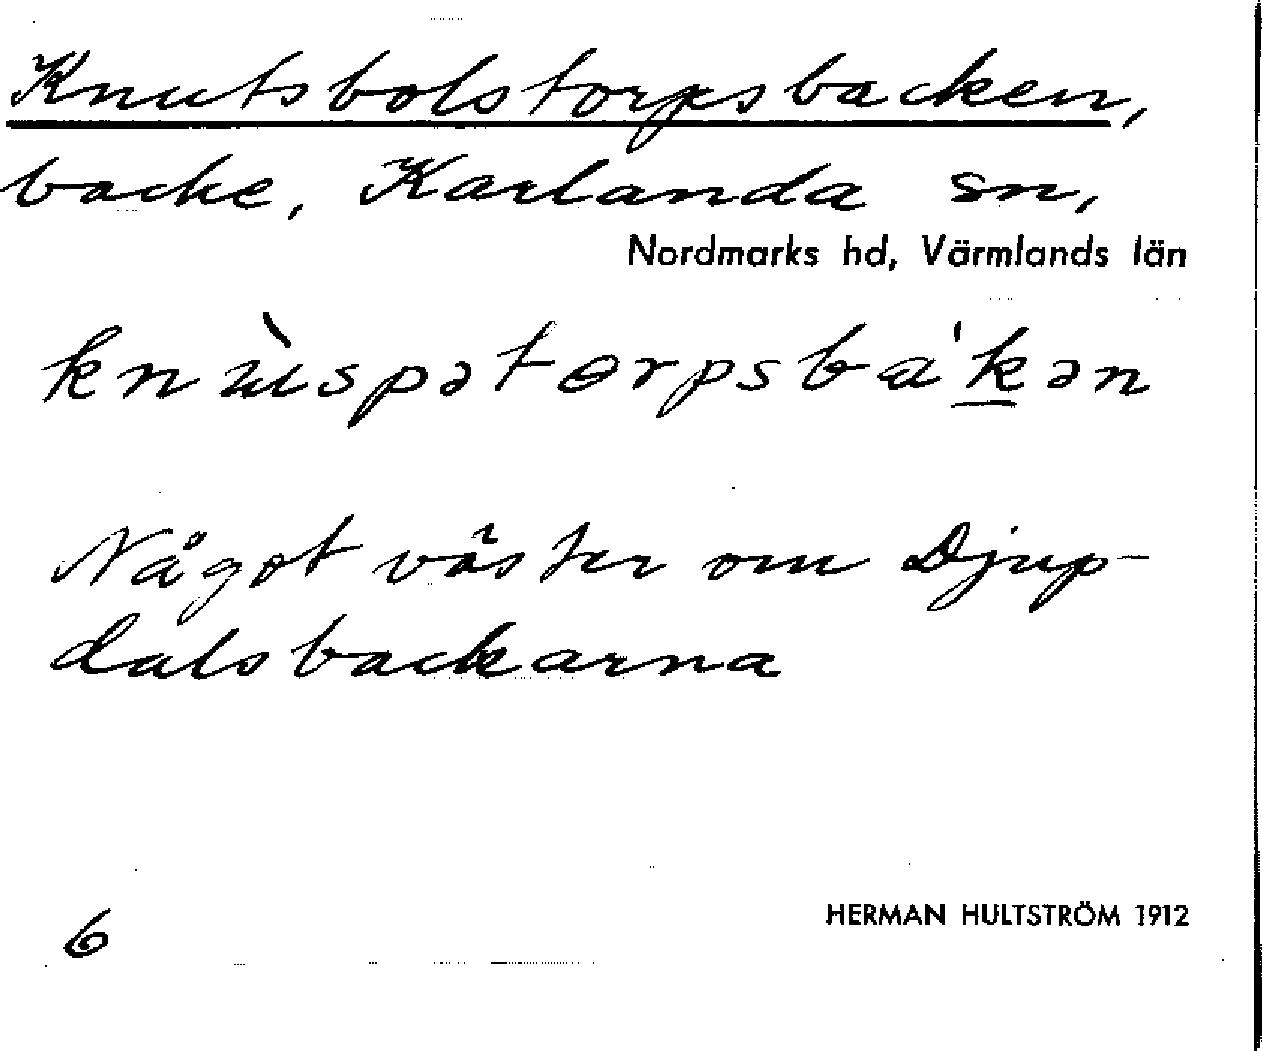 Knutsbolstorpsbacken,
backe, Karlanda sn,
Nordmarks hd, Värmlands län
knùspətɵrpsba'kən
Något väster om Djup-
dalsbackarna
HERMAN HULTSTRÖM 1912
6